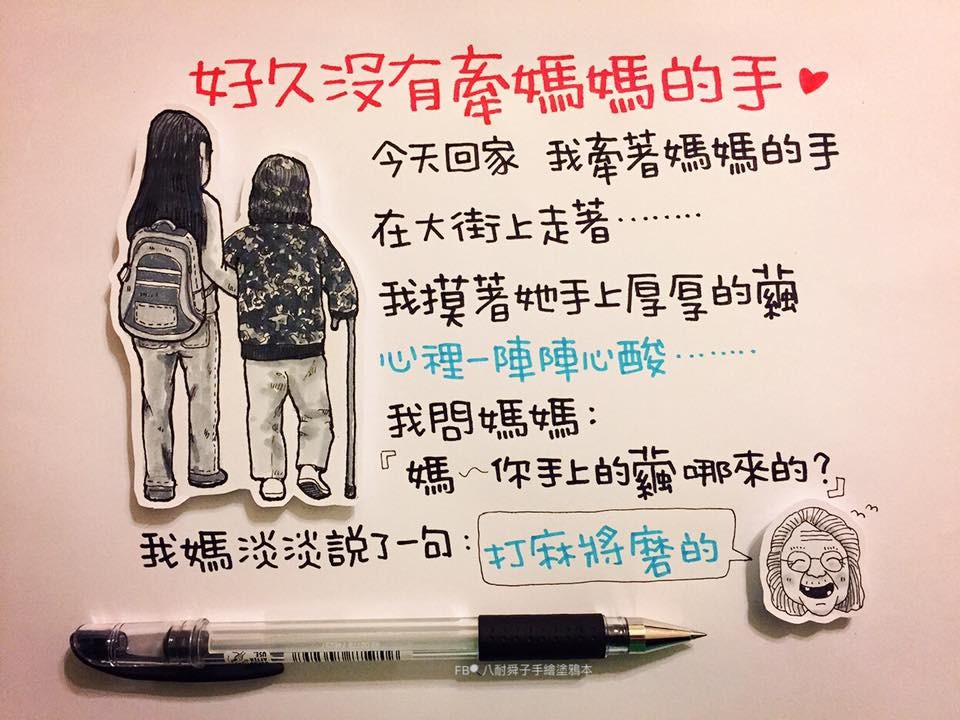 好久沒有牽媽媽的手
今天回家 我牽著媽媽的手
在大街上走著………
我摸著她手上厚厚的繭
心裡一陣陣心酸………
我問媽媽：
『媽～你手上的繭哪來的？』
我媽淡淡說了一句：打麻將磨的
FB 八耐舜子手繪塗鴉本